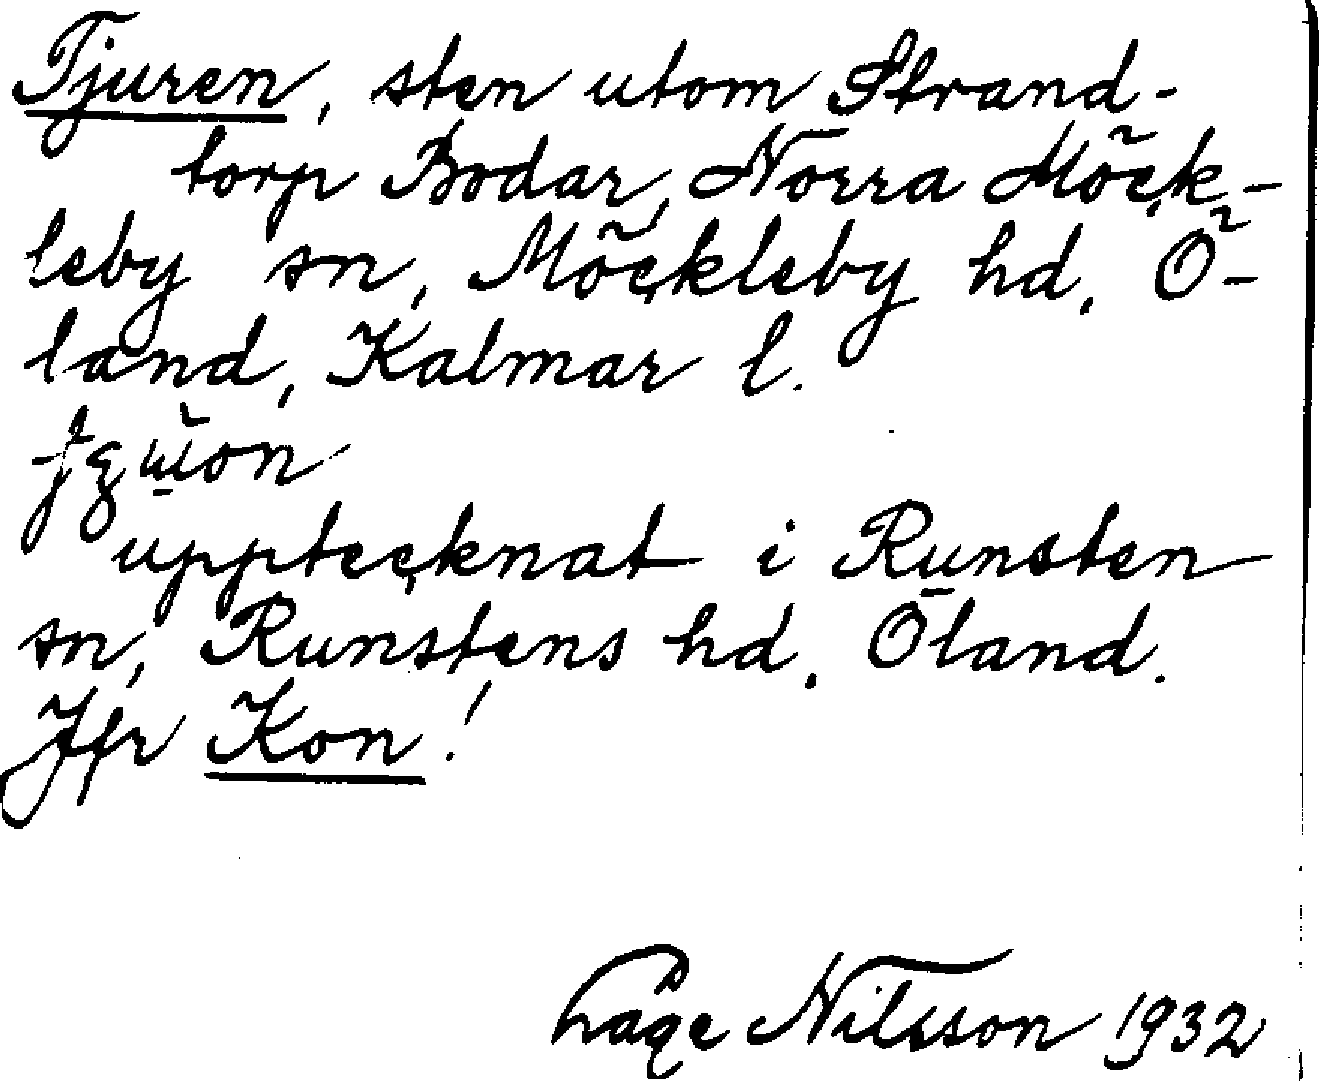 Tjuren, sten utom Strand-
torp Bodar, Norra Möck-
leby sn, Möckleby hd, Ö-
land, Kalmar l.
upptecknat i Runsten
sn, Runstens hd. Öland.
Jfr Kon!
Håge Nilsson 1932